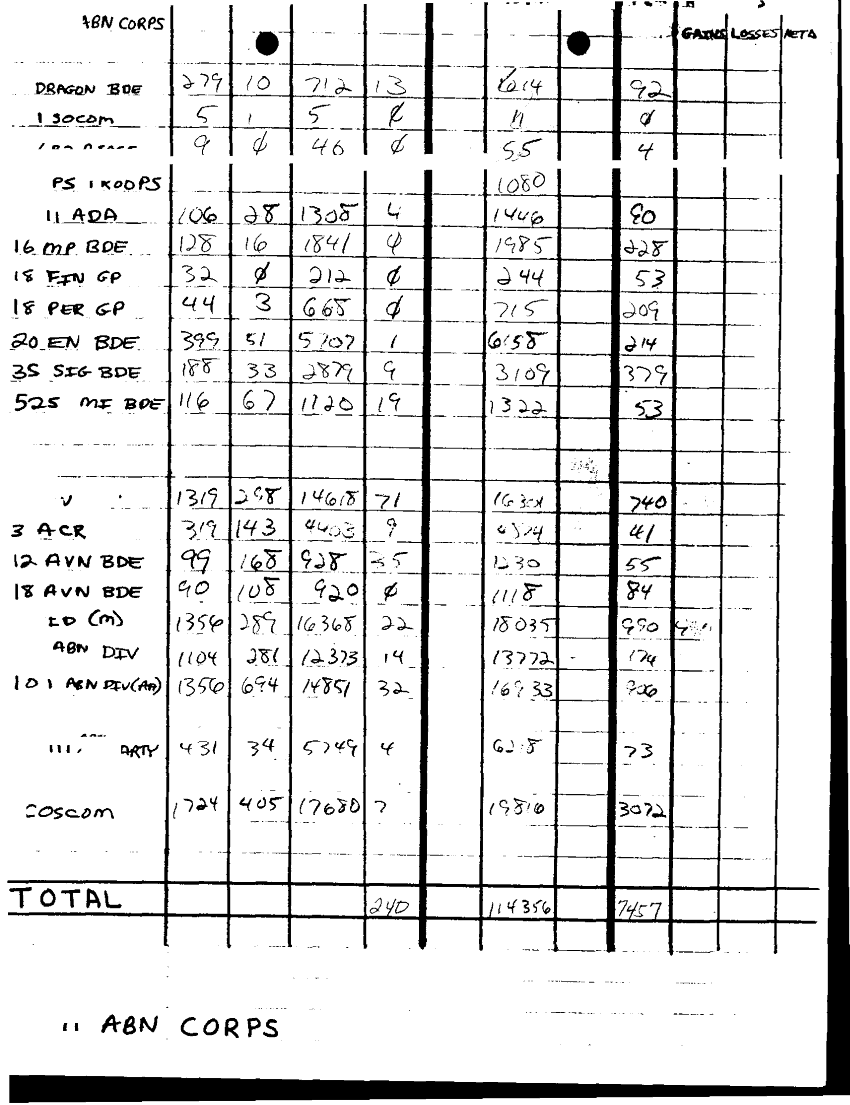 ABN CORPS
GAINS LOSSES
DRAGON BDE 279 10 712 13 1014 92
1 SOCOM 5 1 5 ∅ 11 ∅
9 ∅ 46 ∅ 55 4
1080
11 ADA 106 28 1308 4 1446 90
16 MP BDE 128 16 1841 ∅ 1985 228
18 FIN GP 32 ∅ 212 ∅ 244 53
18 PER GP 44 3 668 ∅ 715 209
20 EN BDE 399 51 5707 1 6158 214
35 SIG BDE 188 33 2879 9 3109 379
525 MI BDE 116 67 1120 19 1322 53
1319 298 14618 71 740
3 ACR 319 143 4403 9 41
12 AVN BDE 99 168 928 35 1230 55
18 AVN BDE 90 108 920 ∅ 1118 84
ID (M) 1356 289 16368 22 18035 990
ABN DIV 1104 281 12373 14 13772 174
101 ABN DIV(AA) 1356 694 14851 32 16933 906
ARTY 431 34 5749 4 6218 73
COSCOM 1724 405 17680 7 19816 3072
TOTAL 240 114356 7457
ABN CORPS